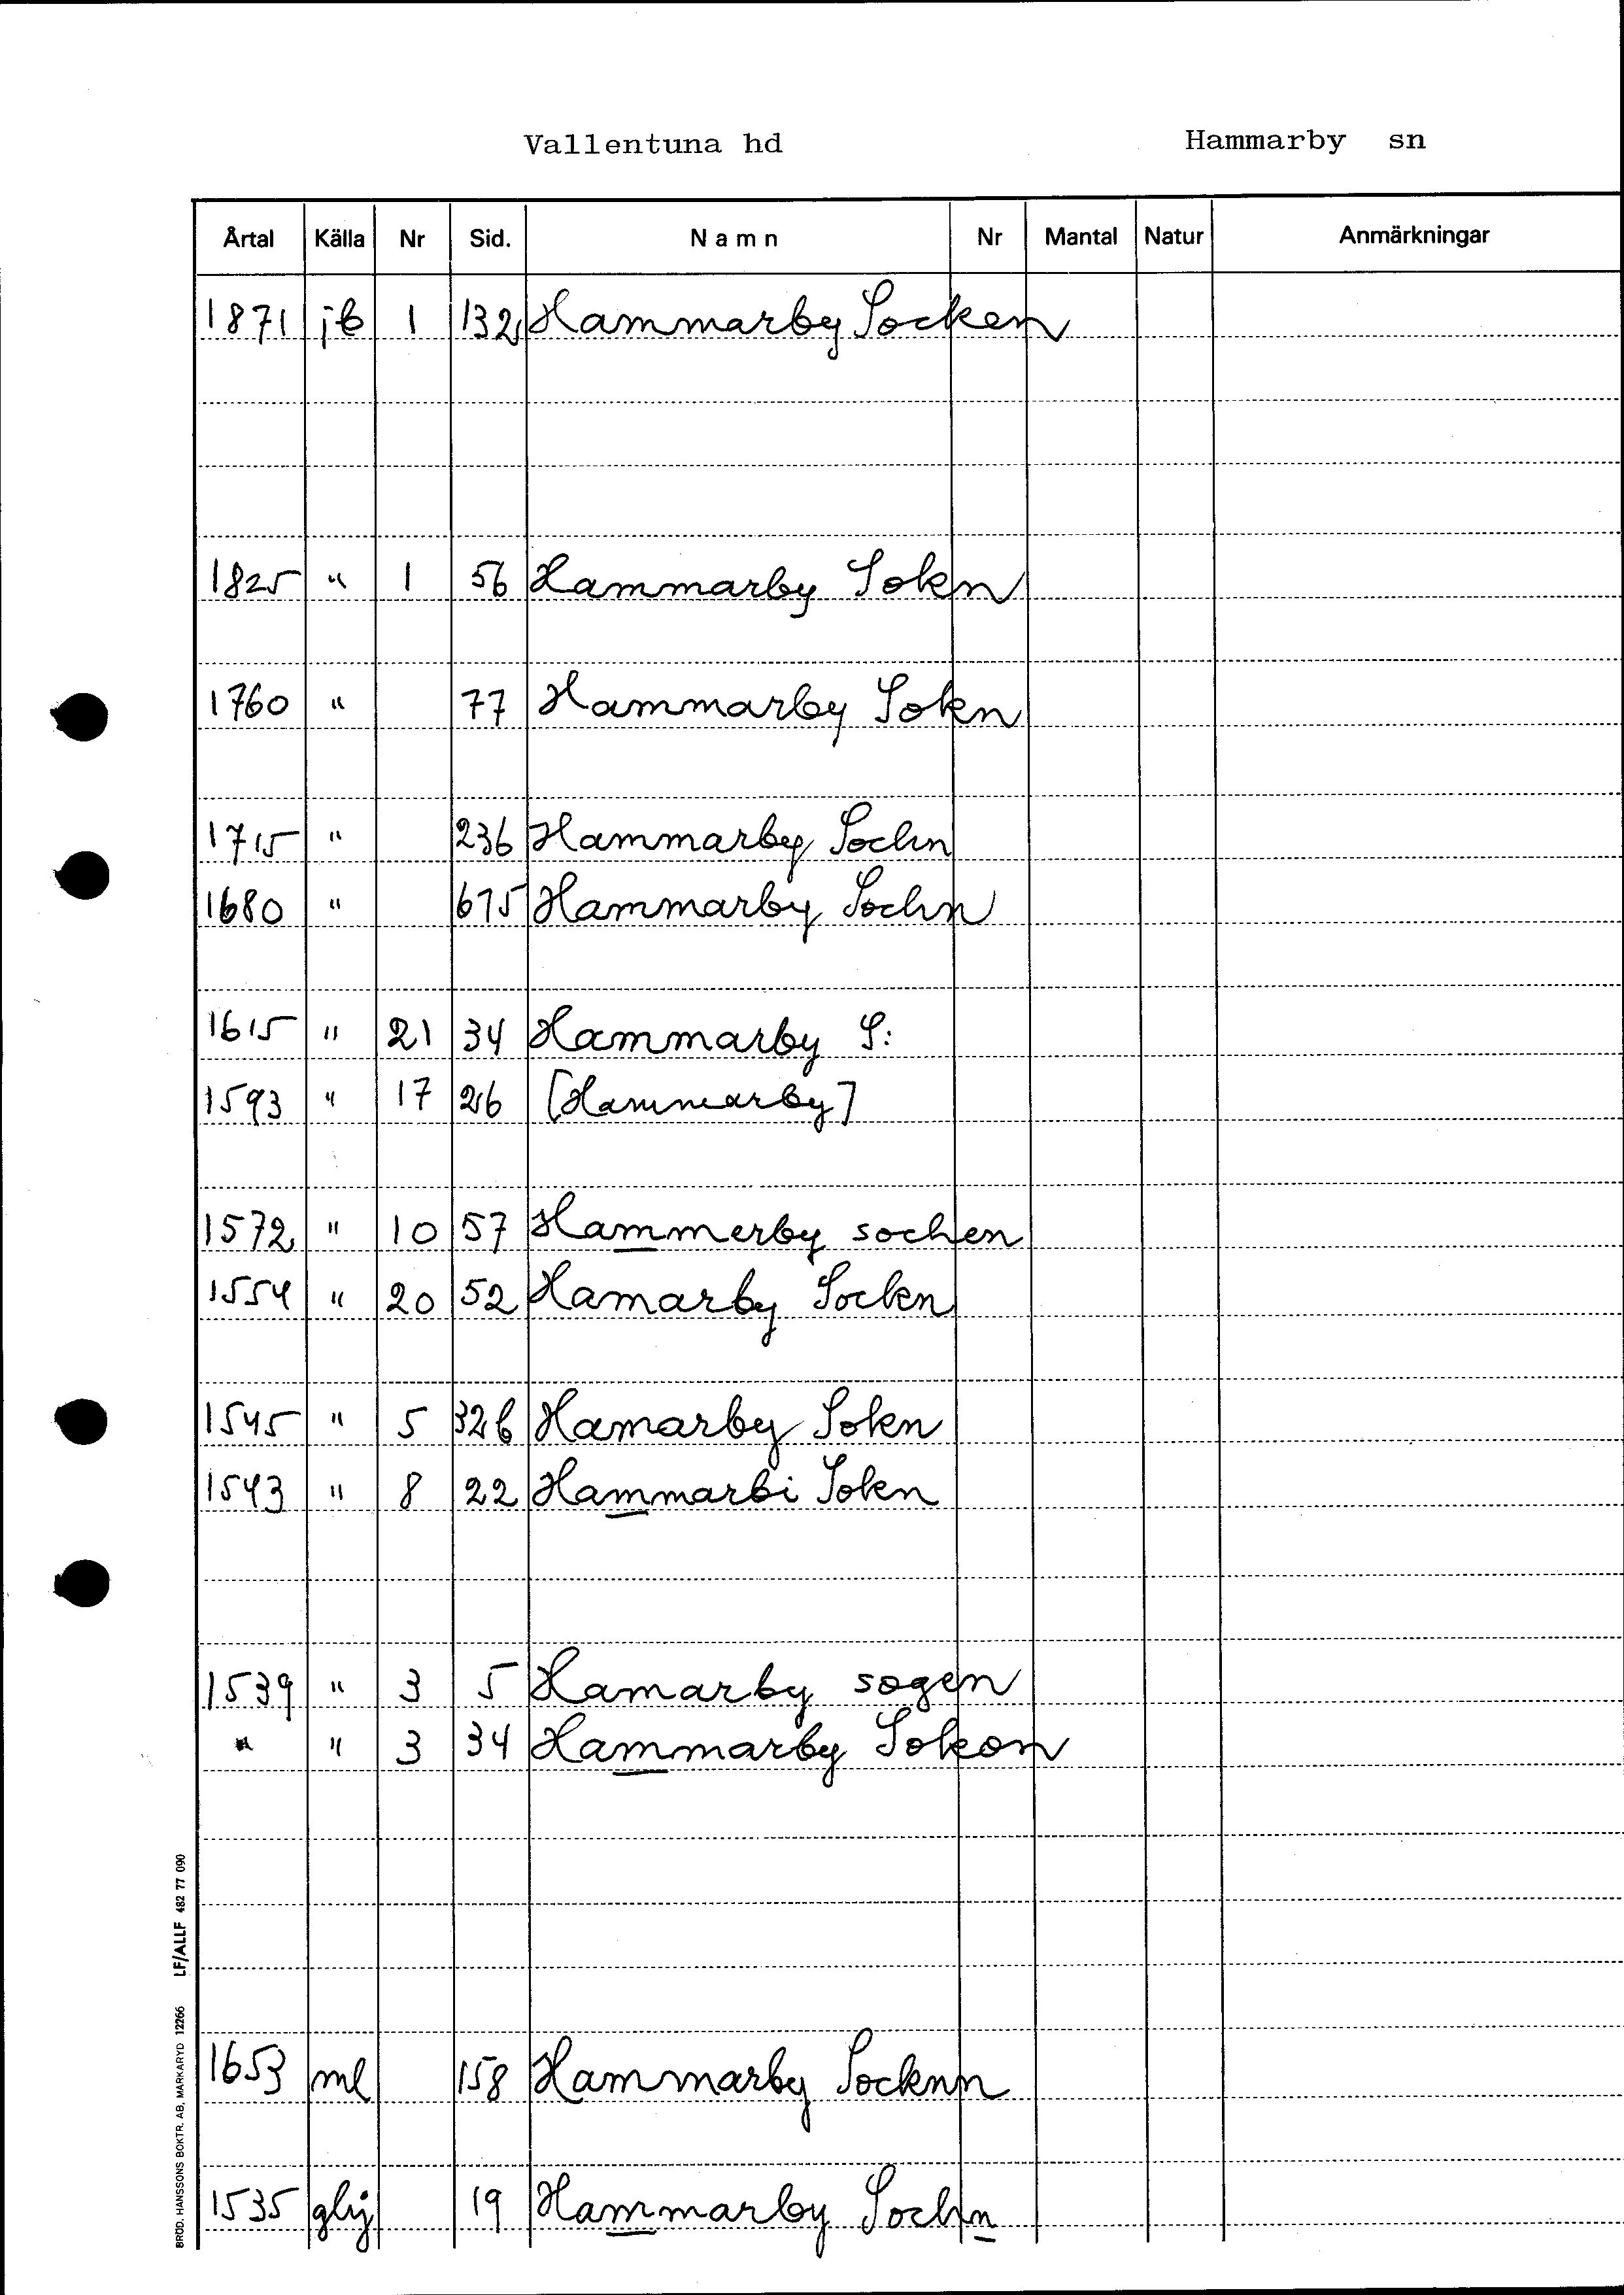 Vallentuna hd Hammarby sn
Årtal Källa Nr Sid. Namn Nr Mantal Natur Anmärkningar
1871 jb 1 132 Hammarby Socken
1825 " 1 56 Hammarby Sokn
1760 " 77 Hammarby Sokn
1715 " 236 Hammarby Sochn
1680 " 675 Hammarby Sochn
1615 " 21 34 Hammarby S:
1593 " 17 26 [Hammarby]
1572 " 10 57 Hammerby sochen
1554 " 20 52 Hamarby Sockn
1545 " 5 326 Hamarby Sokn
1543 " 8 22 Hammarbi Sokn
1539 " 3 5 Hamarby sogen
" " 3 34 Hammarby Sokon
1653 ml 158 Hammarby Socknn
1535 19 Hammarby Sochn
BRÖD. HANSSONS BOKTR. AB, MARKARYD 12266 LF/ALLF 482 77 090